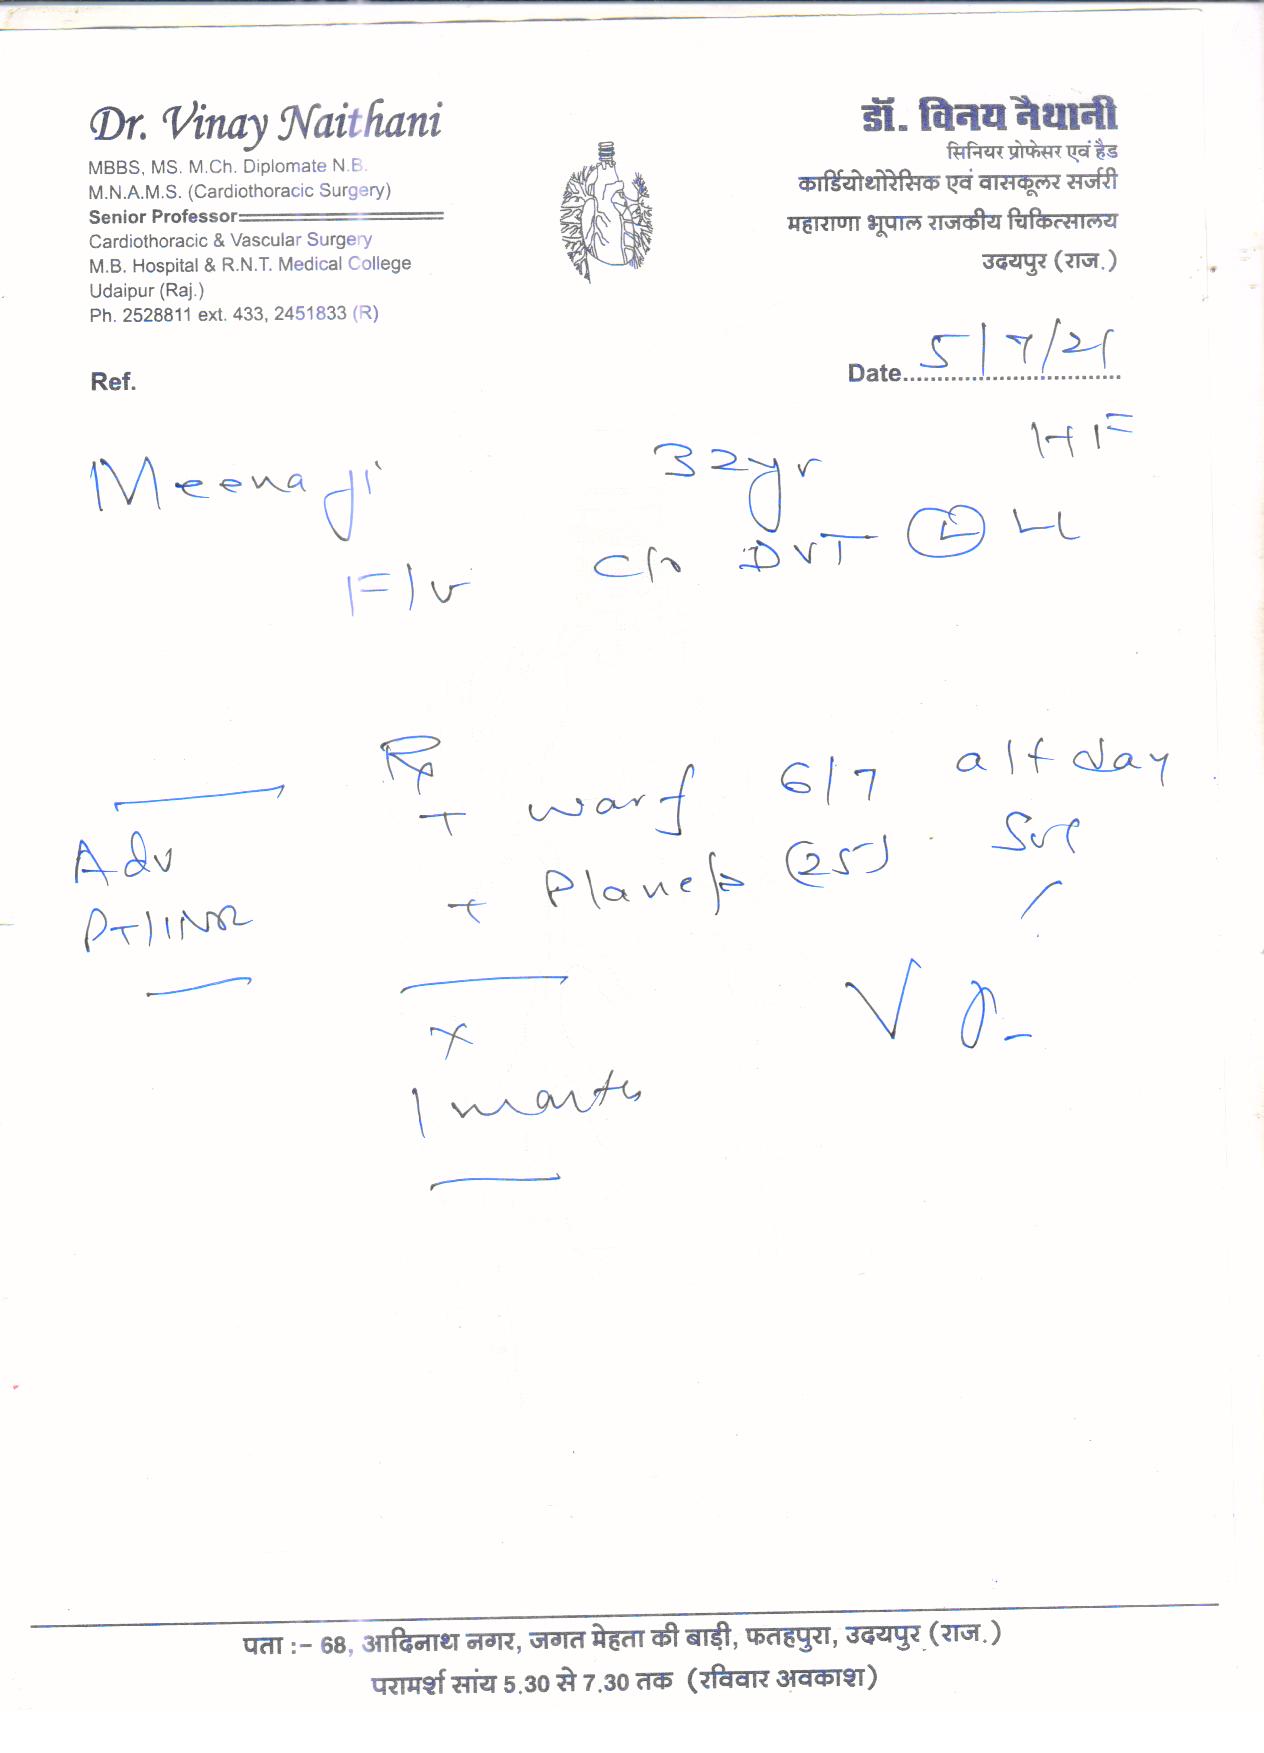 Dr. Vinay Naithani
MBBS, MS. M.Ch. Diplomate N.B.
M.N.A.M.S. (Cardiothoracic Surgery)
Senior Professor
Cardiothoracic & Vascular Surgery
M.B. Hospital & R.N.T. Medical College
Udaipur (Raj.)
Ph. 2528811 ext. 433, 2451833 (R)
डॉ. विनय नैथानी
सिनियर प्रोफेसर एवं हैड
कार्डियोथोरेसिक एवं वासकूलर सर्जरी
महाराणा भूपाल राजकीय चिकित्सालय
उदयपुर (राज.)
Ref.
Date 5/7/21
Meena ji 32yr
F/v c/o DVT (L) LL
Rx
T warf 6/7 alt day
Adv T (25)
PT/INR
x
1 month
पता :- 68, आदिनाथ नगर, जगत मेहता की बाड़ी, फतहपुरा, उदयपुर (राज.)
परामर्श सांय 5.30 से 7.30 तक (रविवार अवकाश)